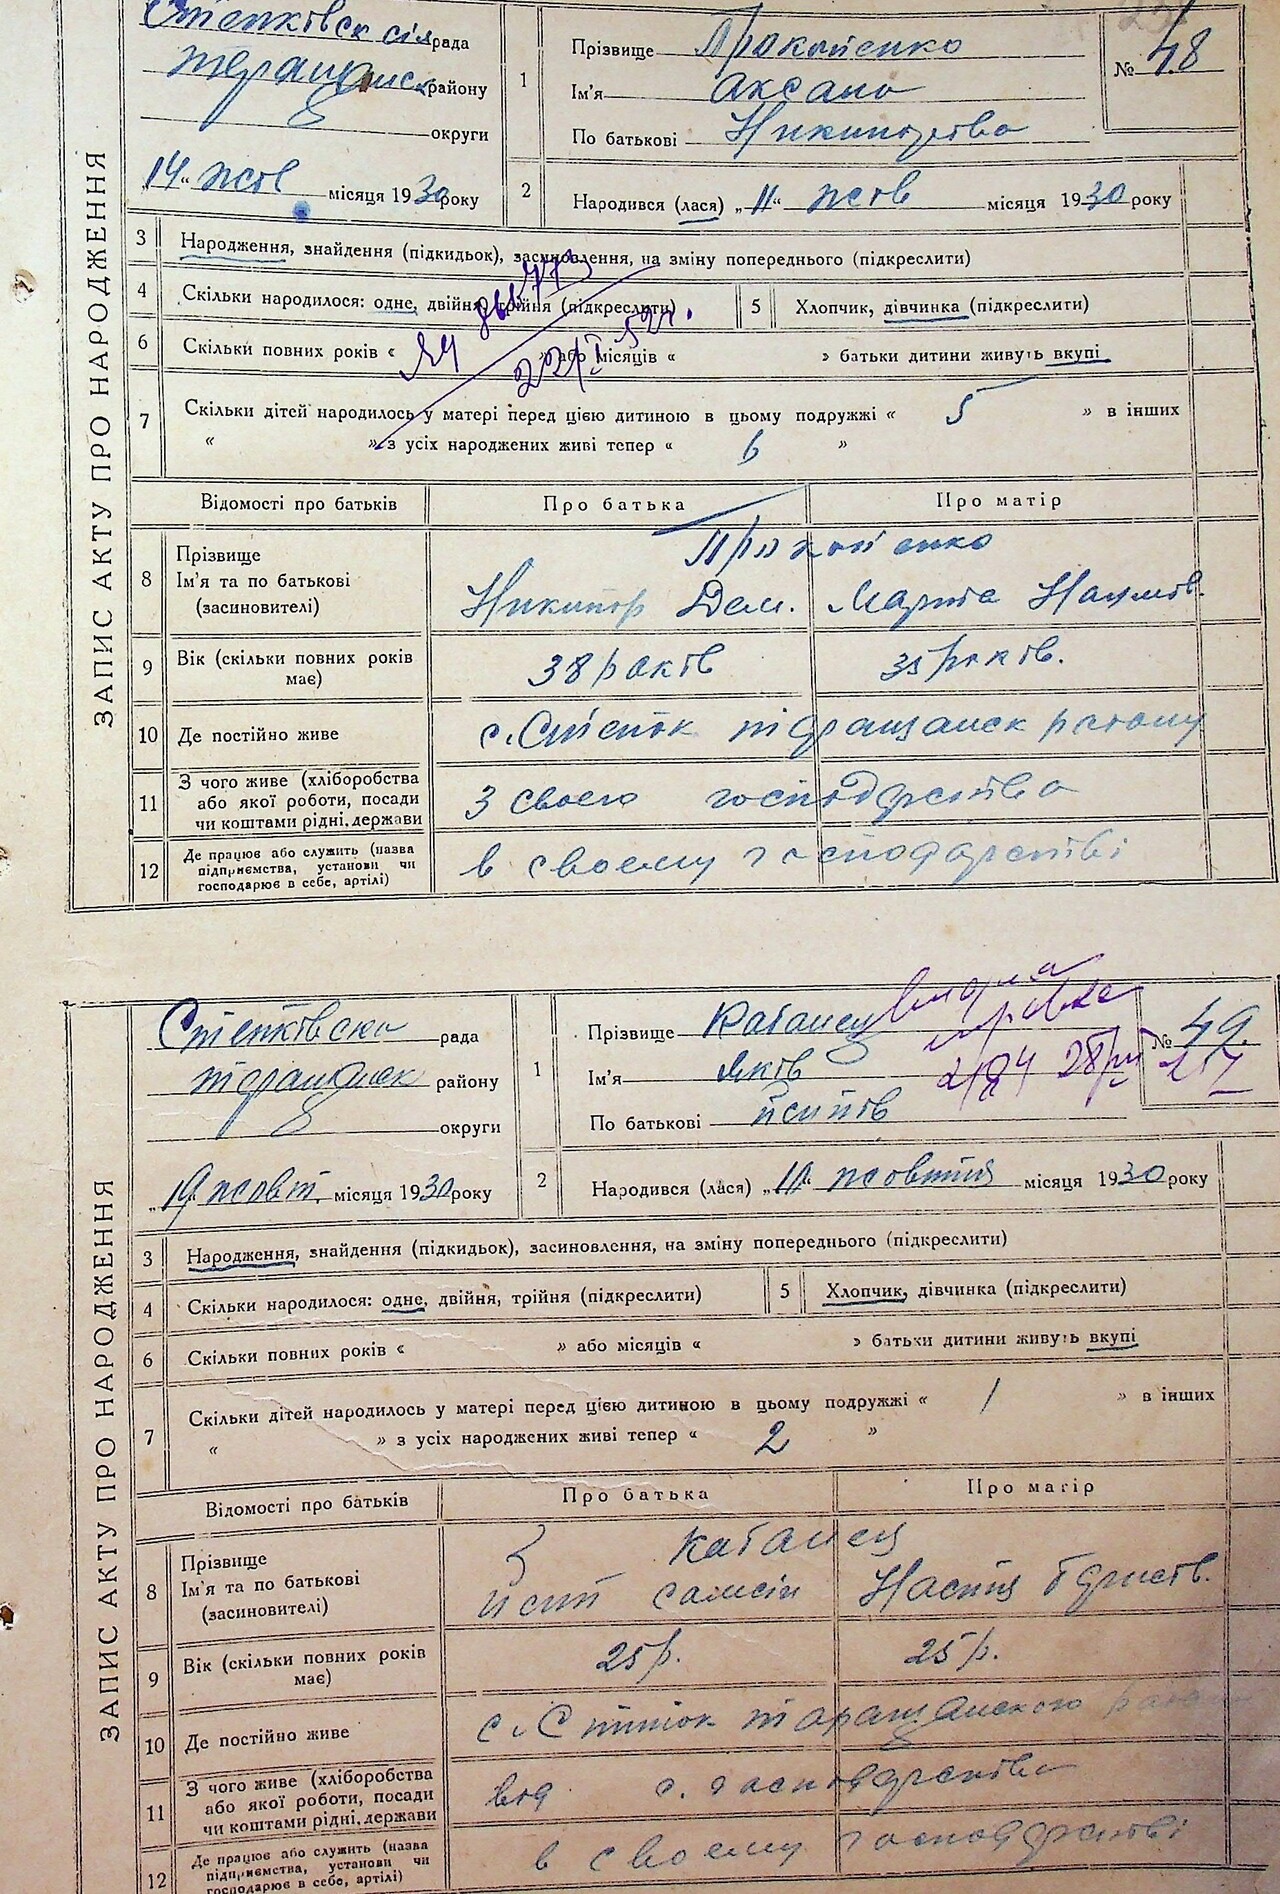 ЗАПИС АКТУ ПРО НАРОДЖЕННЯ
рада
району
округи
„14“ жовт місяця 1930 року
1
Прізвище Прокопенко
Ім'я Аксана
По батькові
№ 48
2
Народився (лася) „11“ жовт місяця 1930 року
3 Народження, знайдення (підкидьок), засиновлення, на зміну попереднього (підкреслити)
4 Скільки народилося: одне, двійня, трійня (підкреслити) 5 Хлопчик, дівчинка (підкреслити)
6 Скільки повних років « » або місяців « » батьки дитини живуть вкупі
22/I 52г.
7 Скільки дітей народилось у матері перед цією дитиною в цьому подружжі « 5 » в інших
« » з усіх народжених живі тепер « 6 »
Відомості про батьків Про батька Про матір
8 Прізвище
Ім'я та по батькові
(засиновителі)
Прокопенко
Никипор Дем. Марта Наумов.
9 Вік (скільки повних років має) 38 років 35 років.
10 Де постійно живе с. Стенок таращанск району
11 З чого живе (хліборобства
або якої роботи, посади
чи коштами рідні, держави
З своего господарства
12 Де працює або служить (назва
підприємства, установи чи
господарює в себе, артілі)
в своему господарстві
ЗАПИС АКТУ ПРО НАРОДЖЕННЯ
рада
таращанск району
округи
„19“ жовт. місяця 1930 року
1
Прізвище Кабанец
Ім'я Яков
По батькові
видана
справка
28/р
№ 49.
2
Народився (лася) „ “ жовтня місяця 1930 року
3 Народження, знайдення (підкидьок), засиновлення, на зміну попереднього (підкреслити)
4 Скільки народилося: одне, двійня, трійня (підкреслити) 5 Хлопчик, дівчинка (підкреслити)
6 Скільки повних років « » або місяців « » батьки дитини живуть вкупі
7 Скільки дітей народилось у матері перед цією дитиною в цьому подружжі « 1 » в інших
« » з усіх народжених живі тепер « 2 »
Відомості про батьків Про батька Про матір
8 Прізвище
Ім'я та по батькові
(засиновителі)
Кабанец
9 Вік (скільки повних років має) 25 р. 25 р.
10 Де постійно живе таращанского
11 З чого живе (хліборобства
або якої роботи, посади
чи коштами рідні, держави
від с. господарства
12 Де працює або служить (назва
підприємства, установи чи
господарює в себе, артілі)
в своему господарстві